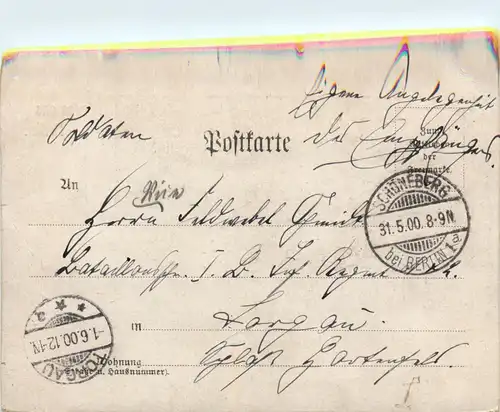 Eigene Angelegenheit
Soldaten
Postkarte
des Empfängers
Zum
der
Freimarke.
An
SCHÖNEBERG
31.5.00.8-9N.
bei BERLIN 1 a.
Herrn Feldwebel
I. B. Inf. Regmt
in
Torgau
-1.6.00.12-1N.
TORGAU
Schloß Hartenfels.
Wohnung
(Straße u. Hausnummer).